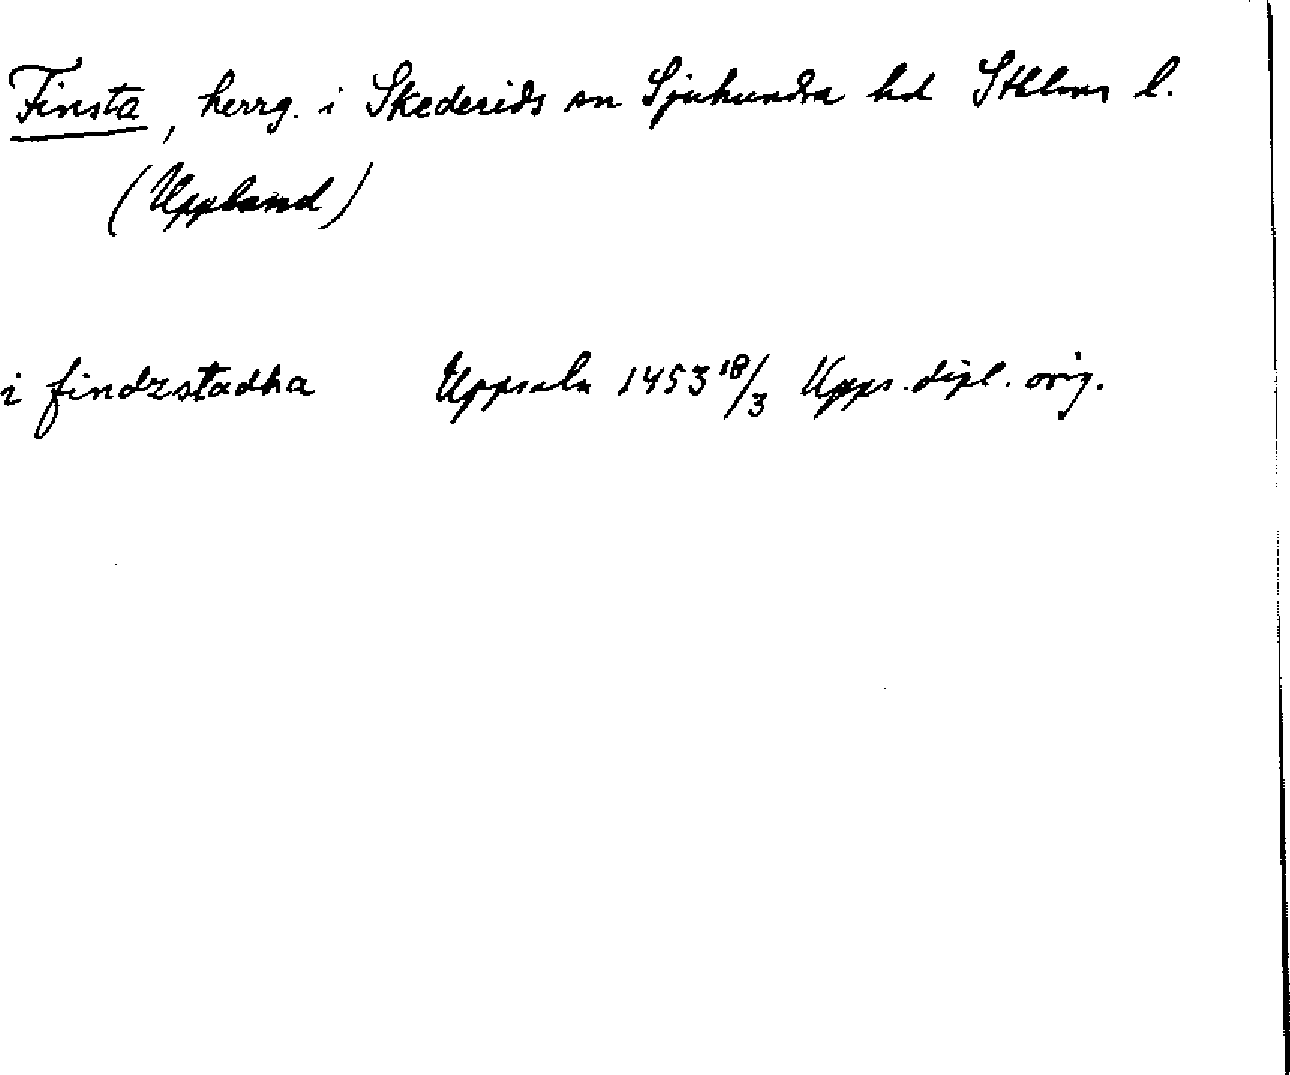 Finsta, herrg. i Skederids sn Sjuhundra hd Sthlms l.
(Uppland)
i findzstadha Uppsala 1453 18/3 Upps. dipl. orig.